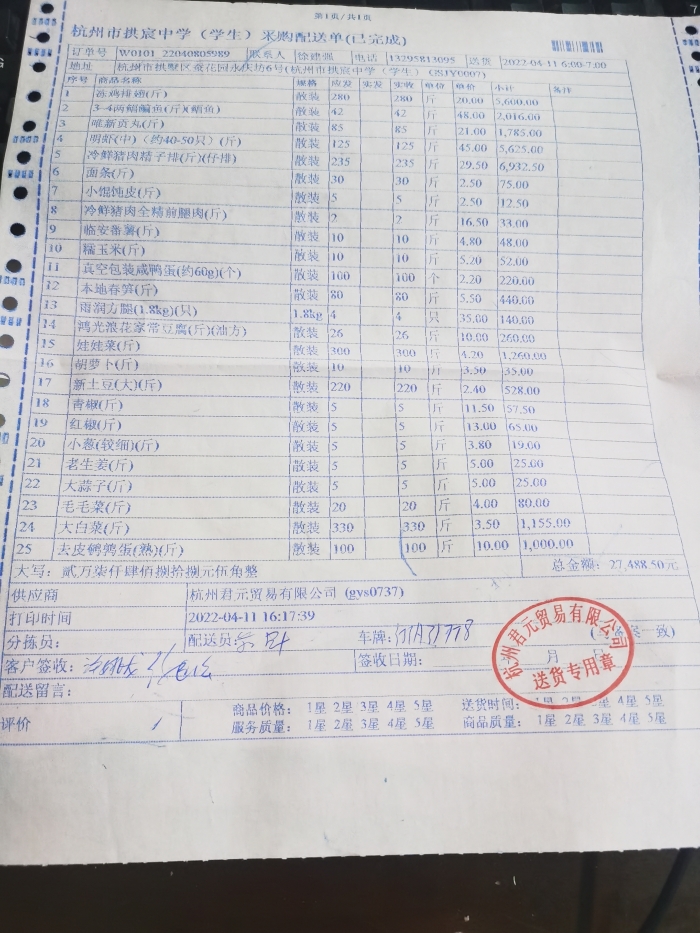 第1页/共1页
杭州市拱宸中学（学生）采购配送单(已完成)
订单号 W0101 22040805989 联系人 徐建强 电话 13295813095 送货 2022-04-11 6:00-7:00
地址 杭州市拱墅区 花园永庆坊6号(杭州市拱宸中学（学生）)
序号 商品名称 规格 应发 实发 实收 单位 单价 小计 备注
1 冻鸡排翅(斤) 散装 280 280 斤 20.00 5,600.00
2 3-4两鳊鳊鱼(斤)(鲳鱼) 散装 42 42 斤 48.00 2,016.00
3 唯新贡丸(斤) 散装 85 85 斤 21.00 1,785.00
4 明虾(中)（约40-50只）(斤) 散装 125 125 斤 45.00 5,625.00
5 冷鲜猪肉精子排(斤)(仔排) 散装 235 235 斤 29.50 6,932.50
6 面条(斤) 散装 30 30 斤 2.50 75.00
7 小馄饨皮(斤) 散装 5 5 斤 2.50 12.50
8 冷鲜猪肉全精前腿肉(斤) 散装 2 2 斤 16.50 33.00
9 临安番薯(斤) 散装 10 10 斤 4.80 48.00
10 糯玉米(斤) 散装 10 10 斤 5.20 52.00
11 真空包装咸鸭蛋(约60g)(个) 散装 100 100 个 2.20 220.00
12 本地春笋(斤) 散装 80 80 斤 5.50 440.00
13 雨润方腿(1.8kg)(只) 1.8kg 4 4 只 35.00 140.00
14 鸿光浪花家常豆腐(斤)(油方) 散装 26 26 斤 10.00 260.00
15 娃娃菜(斤) 散装 300 300 斤 4.20 1,260.00
16 胡萝卜(斤) 散装 10 10 斤 3.50 35.00
17 新土豆(大)(斤) 散装 220 220 斤 2.40 528.00
18 青椒(斤) 散装 5 5 斤 11.50 57.50
19 红椒(斤) 散装 5 5 斤 13.00 65.00
20 小葱(较细)(斤) 散装 5 5 斤 3.80 19.00
21 老生姜(斤) 散装 5 5 斤 5.00 25.00
22 大蒜子(斤) 散装 5 5 斤 5.00 25.00
23 毛毛菜(斤) 散装 20 20 斤 4.00 80.00
24 大白菜(斤) 散装 330 330 斤 3.50 1,155.00
25 去皮鹌鹑蛋(熟)(斤) 散装 100 100 斤 10.00 1,000.00
大写：贰万柒仟肆佰捌拾捌元伍角整 总金额：27,488.50元
供应商 杭州君元贸易有限公司 (gys0737)
打印时间 2022-04-11 16:17:39
分拣员： 配送员: 车牌:
客户签收： 签收日期： 月 日
配送留言：
评价 商品价格： 1星 2星 3星 4星 5星 送货时间： 1星 2星 3星 4星 5星
服务质量： 1星 2星 3星 4星 5星 商品质量： 1星 2星 3星 4星 5星
杭州君元贸易有限公司
送货专用章